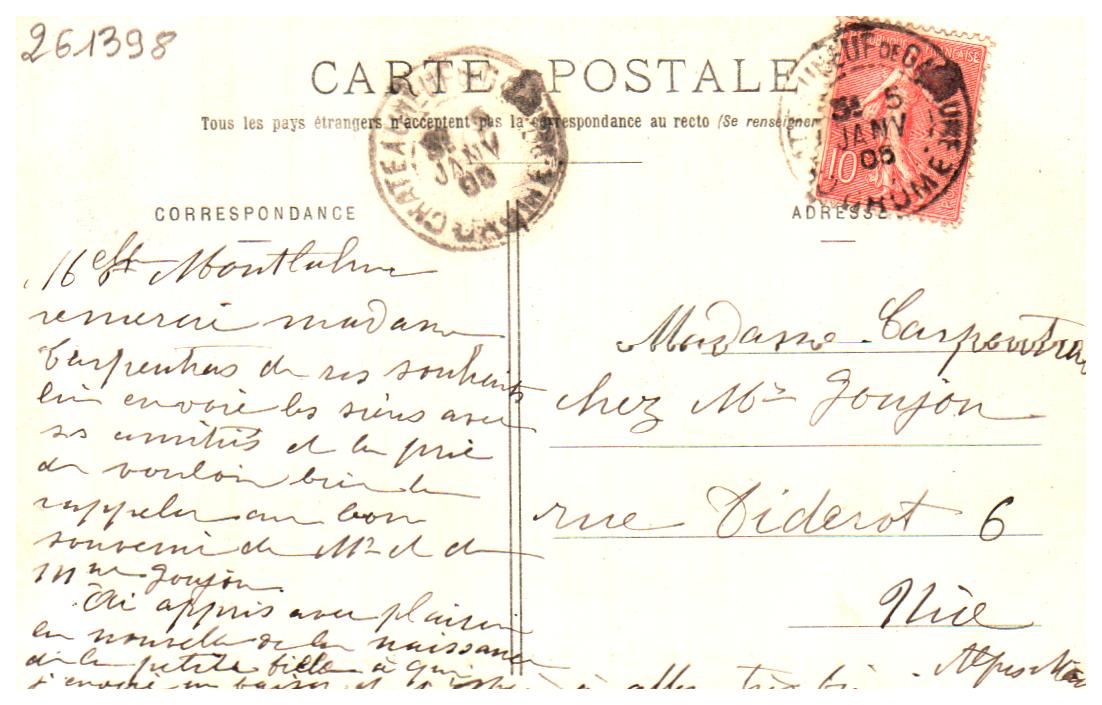 261398
CARTE POSTALE
Tous les pays étrangers n'acceptent pas la correspondance au recto (Se renseigner
RÉPUBLIQUE FRANÇAISE
10
5
JANV
05
CHATEAUNEUF DE GALAURE
DROME
CORRESPONDANCE
Melle
remercie madame
Carpentras de ses souhaits
lui envoie les siens avec
ses amitiés et la prie
de vouloir bien la
rappeler au bon
souvenir de Mr et de
Mme Goujon
Ai appris avec plaisir
la nouvelle de la naissance
de la petite fille à qui
j'envoie un baiser et
à aller très bi
ADRESSE
Madame Carpentras
chez Mr Goujon
rue Diderot 6
Nice
Alpes